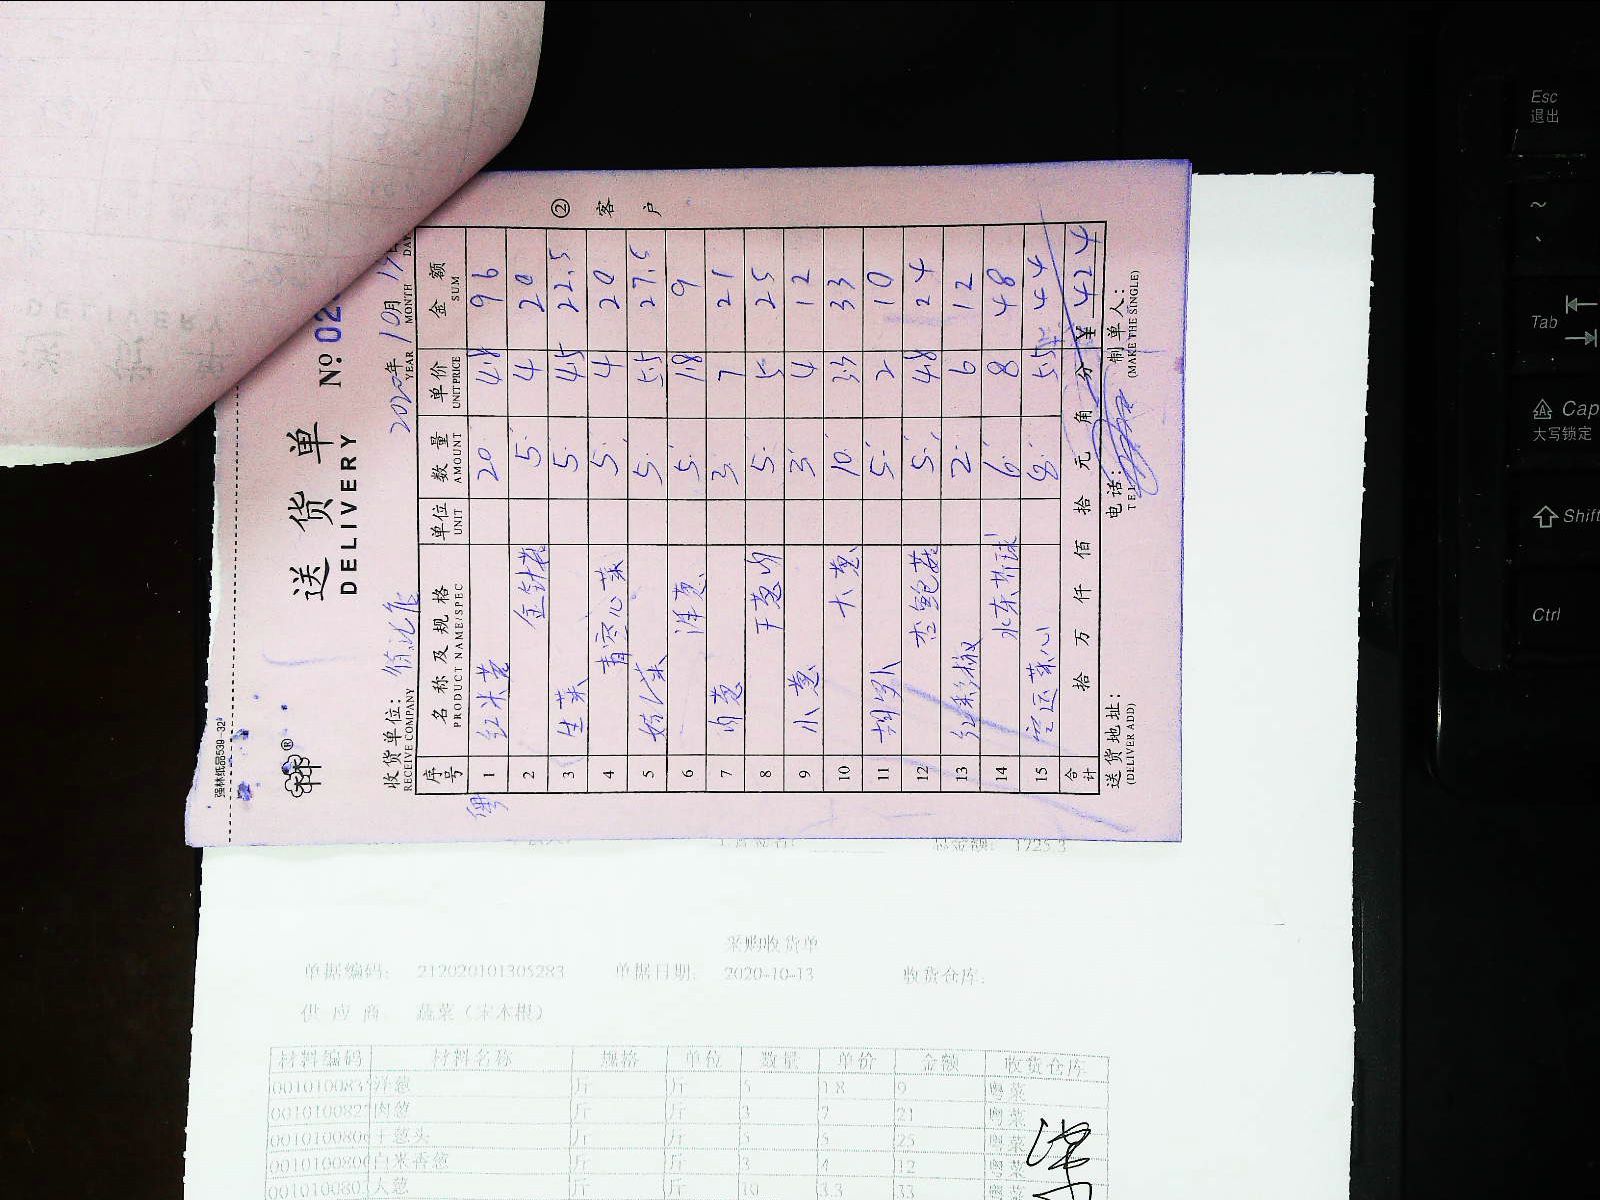 强林纸品539-32
送货单
DELIVERY
No: 02
收货单位:
RECEIVE COMPANY
2020年 10月
YEAR MONTH DAY
序号 名称及规格 单位 数量 单价 金额
PRODUCT NAME/SPEC UNIT AMOUNT UNIT PRICE SUM
1 红米苋 20 4.8 96
2 金针菇 5 4 20
3 生菜 5 4.5 22.5
4 青空心菜 5 4 20
5 娃娃菜 5 5.5 27.5
6 洋葱 5 1.8 9
7 肉葱 3 7 21
8 干葱肉 5 5 25
9 小葱 3 4 12
10 大葱 10 3.3 33
11 胡萝卜 5 2 10
12 杏鲍菇 5 4.8 24
13 红彩椒 2 6 12
14 水东芥球 6 8 48
15 空运菜心 8 5.5 44
合计 拾 万 仟 佰 拾 元 角 分 ¥ 424
送货地址: 电话: 制单人:
(DELIVER ADD) TEL (MAKE THE SINGLE)
② 客户
总金额: 1725.3
采购收货单
单据编码: 212020101305283 单据日期: 2020-10-13 收货仓库:
供应商 蔬菜（宋本根）
材料编码 材料名称 规格 单位 数量 单价 金额 收货仓库
001010083 洋葱 斤 斤 5 1.8 9 粤菜
001010082 肉葱 斤 斤 3 7 21 粤菜
001010080 干葱头 斤 斤 5 5 25 粤菜
001010080 白米香葱 斤 斤 3 4 12 粤菜
001010080 大葱 斤 斤 10 3.3 33 粤菜
Esc
退出
~
Tab
Cap
大写锁定
Shift
Ctrl